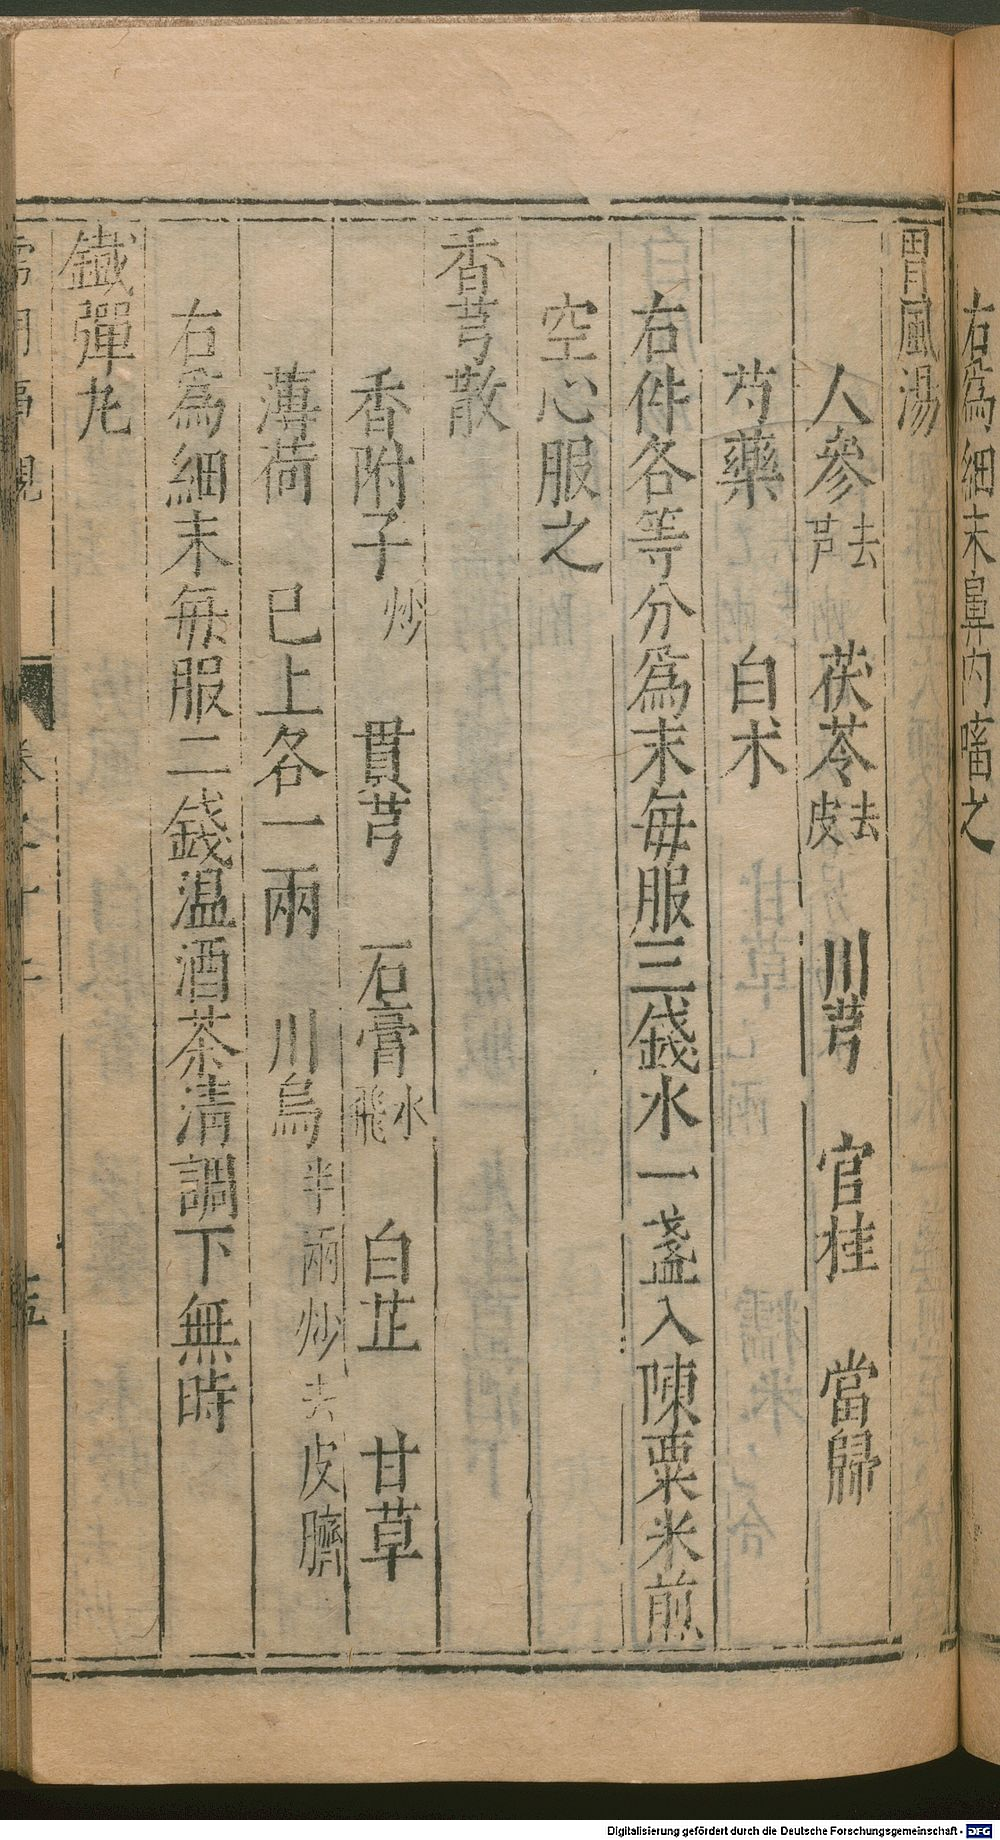 右爲細末鼻內㗜之
胃風湯
人參去芦 茯苓去皮 川芎 官桂 當歸
芍藥 白术
右件各等分爲末每服三錢水一盞入陳粟米煎
空心服之
香芎散
香附子炒 貫芎 石膏水飛 白芷 甘草
薄荷 已上各一兩 川烏半兩炒去皮臍
右爲細末每服二錢溫酒茶清調下無時
鐵彈丸
Digitalisierung gefördert durch die Deutsche Forschungsgemeinschaft - DFG